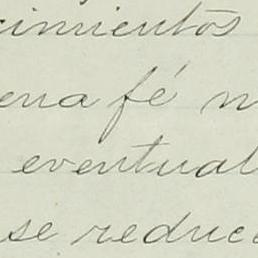 cimientos
ena fé n
eventual
se reduce